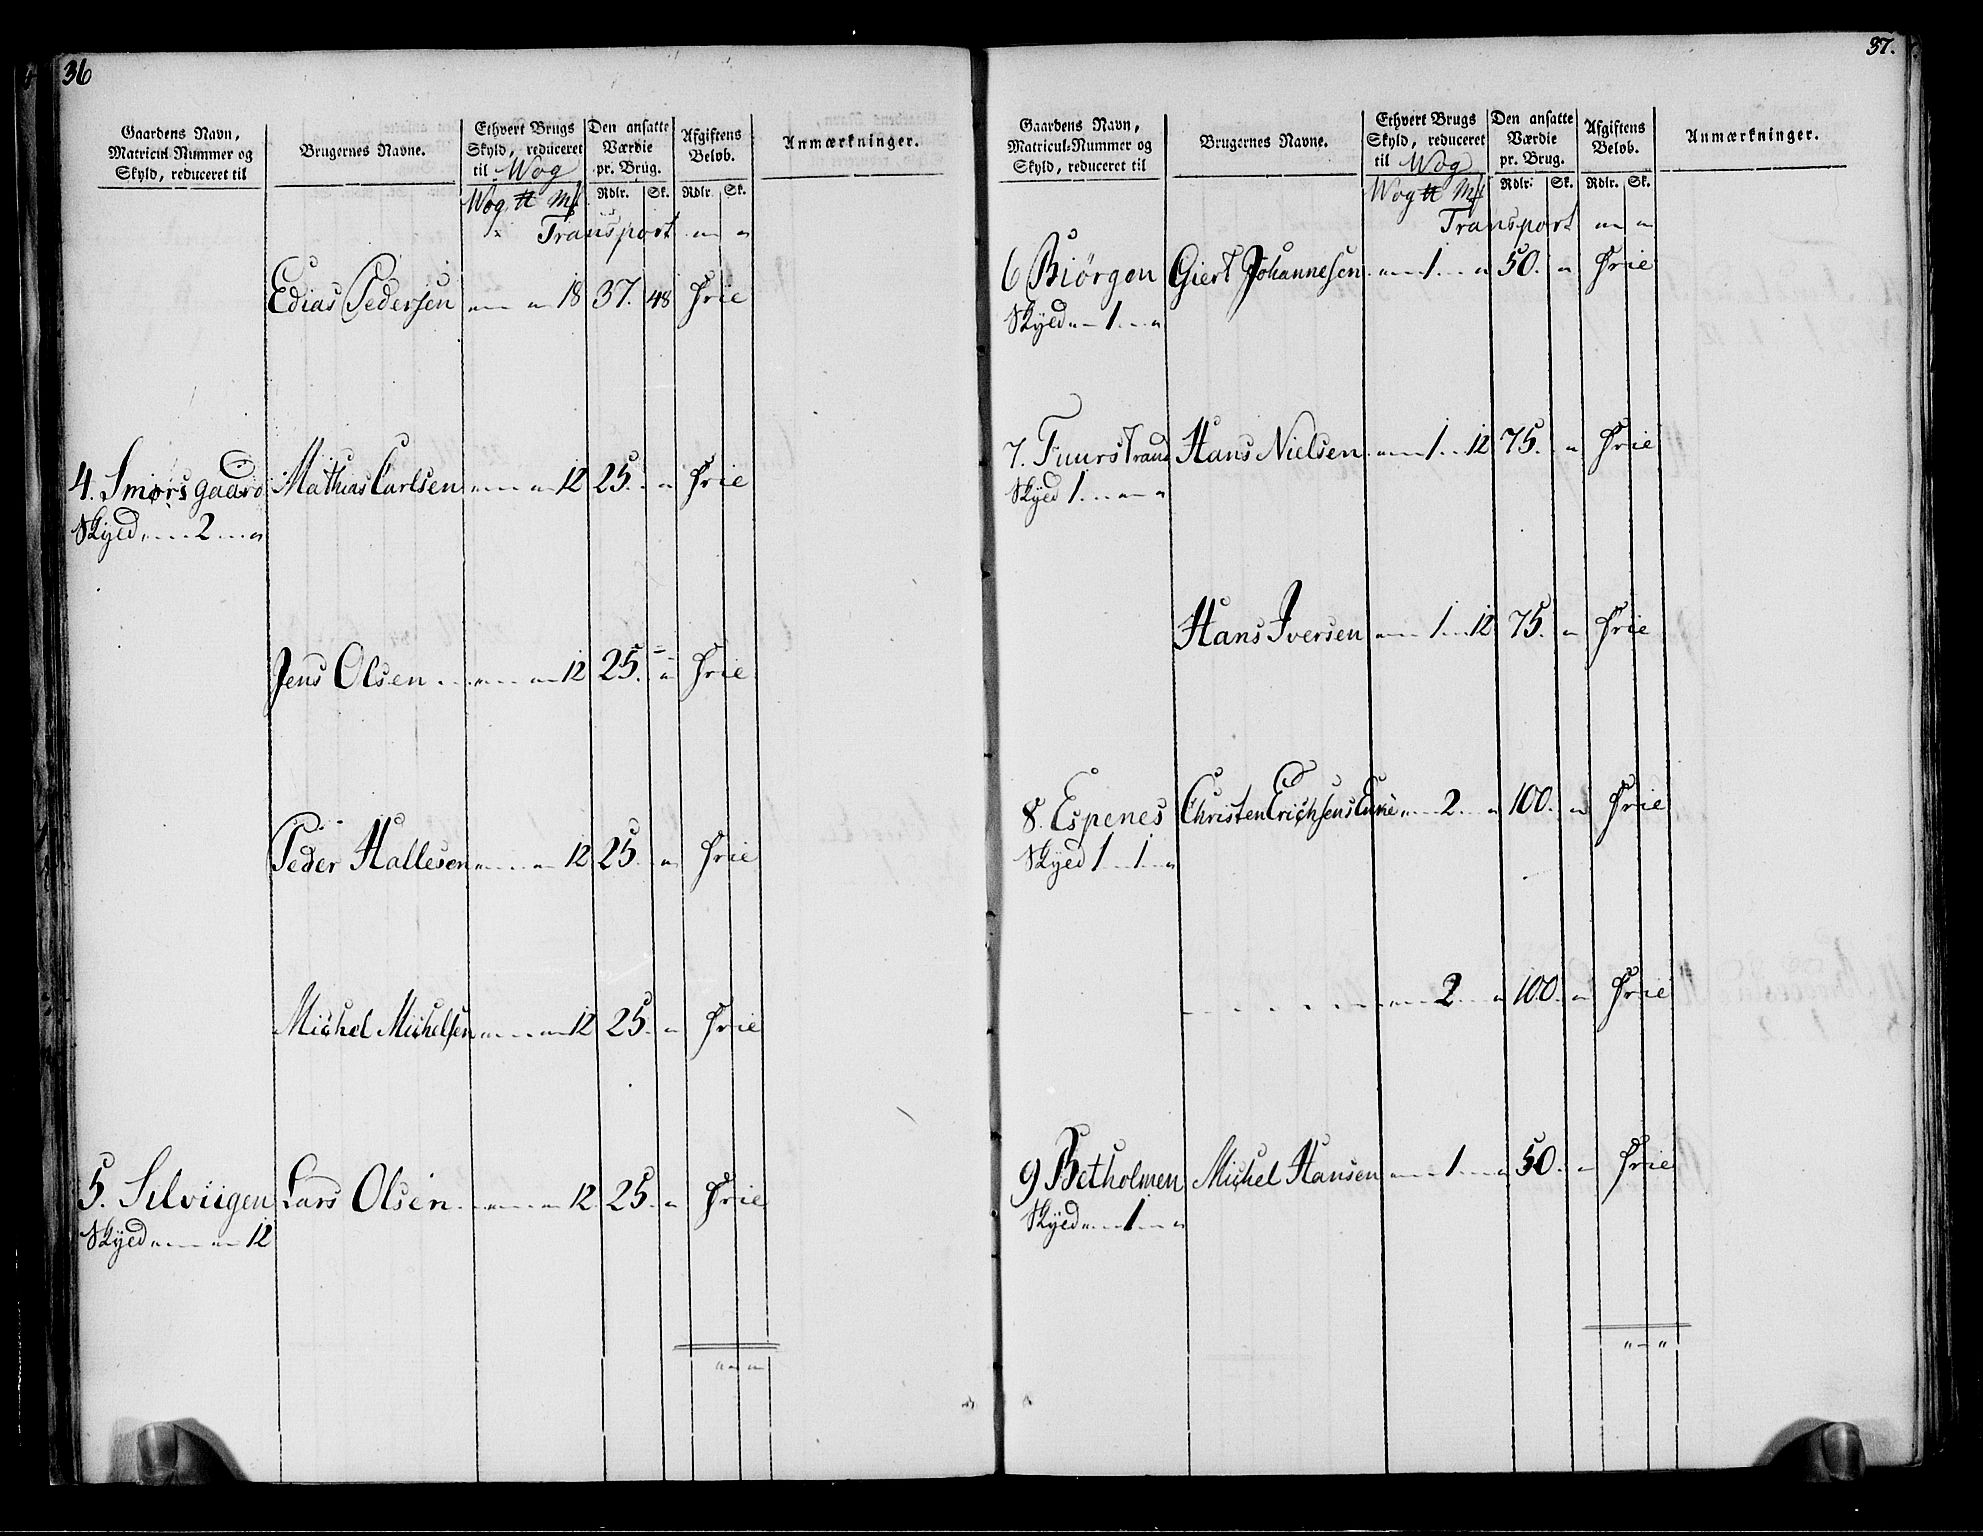 36
Gaardens Navn,
Matricul-Nummer og
Skyld, reduceret til
Brugernes Navne.
Ethvert Brugs
Skyld, reduceret
til Wog
Den ansatte
Værdie
pr. Brug.
Afgiftens
Beløb.
Anmærkninger.
Wog. ℔ Mk
Rdlr. Sk. Rdlr. Sk.
Transport " "
Edias Pedersen " " 18 37. 48 Frie
4. Smørsgaard Mathias Carlsen " " 12 25. " Frie
Skyld " 2 "
Jens Olsen " " 12 25. " Frie
Peder Hallesen " " 12 25. " Frie
Michel Michelsen " " 12 25. " Frie
5. Silviigen Lars Olsen " " 12 25. " Frie
Skyld " " 12
" "
37.
Gaardens Navn,
Matricul-Nummer og
Skyld, reduceret til
Brugernes Navne.
Ethvert Brugs
Skyld, reduceret
til Wog
Den ansatte
Værdie
pr. Brug.
Afgiftens
Beløb.
Anmærkninger.
Wog ℔ Mk
Rdlr. Sk. Rdlr. Sk.
Transport " "
6 Biørgen Giert Johannesen " 1 " 50. " Frie
Skyld " 1 "
7. Fuurstrand Hans Nielsen " 1 12 75. " Frie
Skyld 1 " "
Hans Iversen " 1 12 75. " Frie
8. Espenes Christen Erichsens Enke " 2 " 100. " Frie
Skyld 1 1 "
" 2 " 100. " Frie
9 Betholmen Michel Hansen " 1 " 50. " Frie
Skyld " 1 "
" "